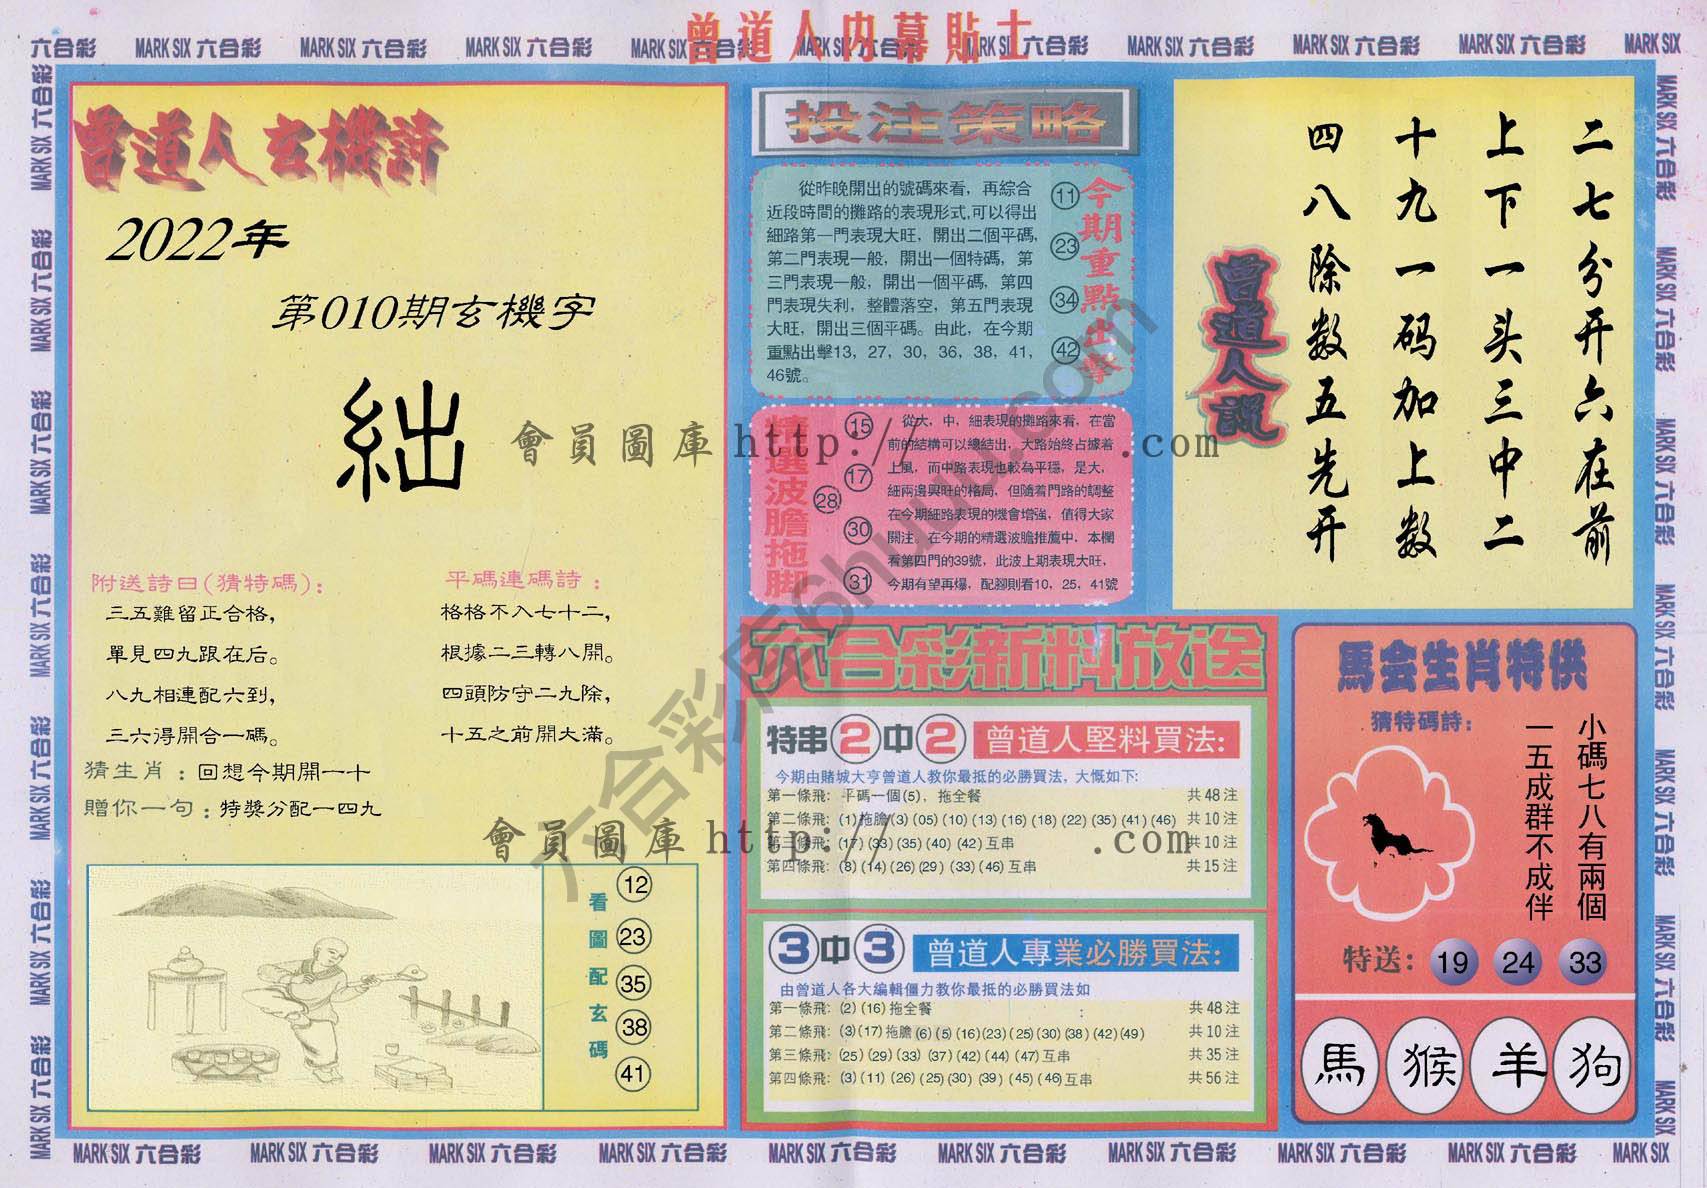 曾道人内幕貼士
六合彩 MARK SIX 六合彩 MARK SIX 六合彩 MARK SIX 六合彩 MARK SIX 六合彩 MARK SIX 六合彩 MARK SIX 六合彩 MARK SIX 六合彩 MARK SIX 六合彩 MARK SIX
曾道人玄機詩
2022年
第010期玄機字
絀
附送詩曰(猜特碼):
三五難留正合格,
單見四九跟在后。
八九相連配六到,
三六得開合一碼。
平碼連碼詩:
格格不入七十二,
根據二三轉八開。
四頭防守二九除,
十五之前開大滿。
猜生肖:回想今期開一十
贈你一句:特獎分配一四九
看圖配玄碼
12
23
35
38
41
投注策略
從昨晚開出的號碼來看，再綜合
近段時間的攤路的表現形式,可以得出
細路第一門表現大旺，開出二個平碼,
第二門表現一般，開出一個特碼，第
三門表現一般，開出一個平碼，第四
門表現失利，整體落空，第五門表現
大旺，開出三個平碼。由此，在今期
重點出擊13，27，30，36，38，41，
46號。
11
23
34
42
今期重點出擊
精選波膽拖脚
15
17
28
30
31
從大，中，細表現的攤路來看，在當
前的結構可以總結出，大路始終占據着
上風，而中路表現也較為平穩，是大，
細兩邊興旺的格局，但隨着門路的調整
在今期細路表現的機會增強，值得大家
關注。在今期的精選波膽推薦中，本欄
看第四門的39號，此波上期表現大旺，
今期有望再爆，配腳則看10，25，41號
二七分开六在前
上下一头三中二
十九一码加上数
四八除数五先开
曾道人說
六合彩新料放送
特串2中2 曾道人堅料買法:
今期由賭城大亨曾道人教你最抵的必勝買法，大慨如下:
第一條飛: 平碼一個(5)，拖全餐 共48注
第二條飛: (1)拖膽(3)(05)(10)(13)(16)(18)(22)(35)(41)(46) 共10注
第三條飛: (17)(33)(35)(40)(42)互串 共10注
第四條飛: (8)(14)(26)(29)(33)(46)互串 共15注
3中3 曾道人專業必勝買法:
由曾道人各大編輯僵力教你最抵的必勝買法如
第一條飛: (2)(16)拖全餐 : 共48注
第二條飛: (3)(17)拖膽(6)(5)(16)(23)(25)(30)(38)(42)(49) 共10注
第三條飛: (25)(29)(33)(37)(42)(44)(47)互串 共35注
第四條飛: (3)(11)(26)(25)(30)(39)(45)(46)互串 共56注
馬会生肖特供
猜特碼詩:
小碼七八有兩個
一五成群不成伴
特送: 19 24 33
馬 猴 羊 狗
會員圖庫 http:// .com
會員圖庫 http:// .com
六合彩库6huu.com
MARK SIX 六合彩 MARK SIX 六合彩 MARK SIX 六合彩 MARK SIX 六合彩 MARK SIX 六合彩 MARK SIX 六合彩 MARK SIX 六合彩 MARK SIX 六合彩 MARK SIX 六合彩 MARK SIX